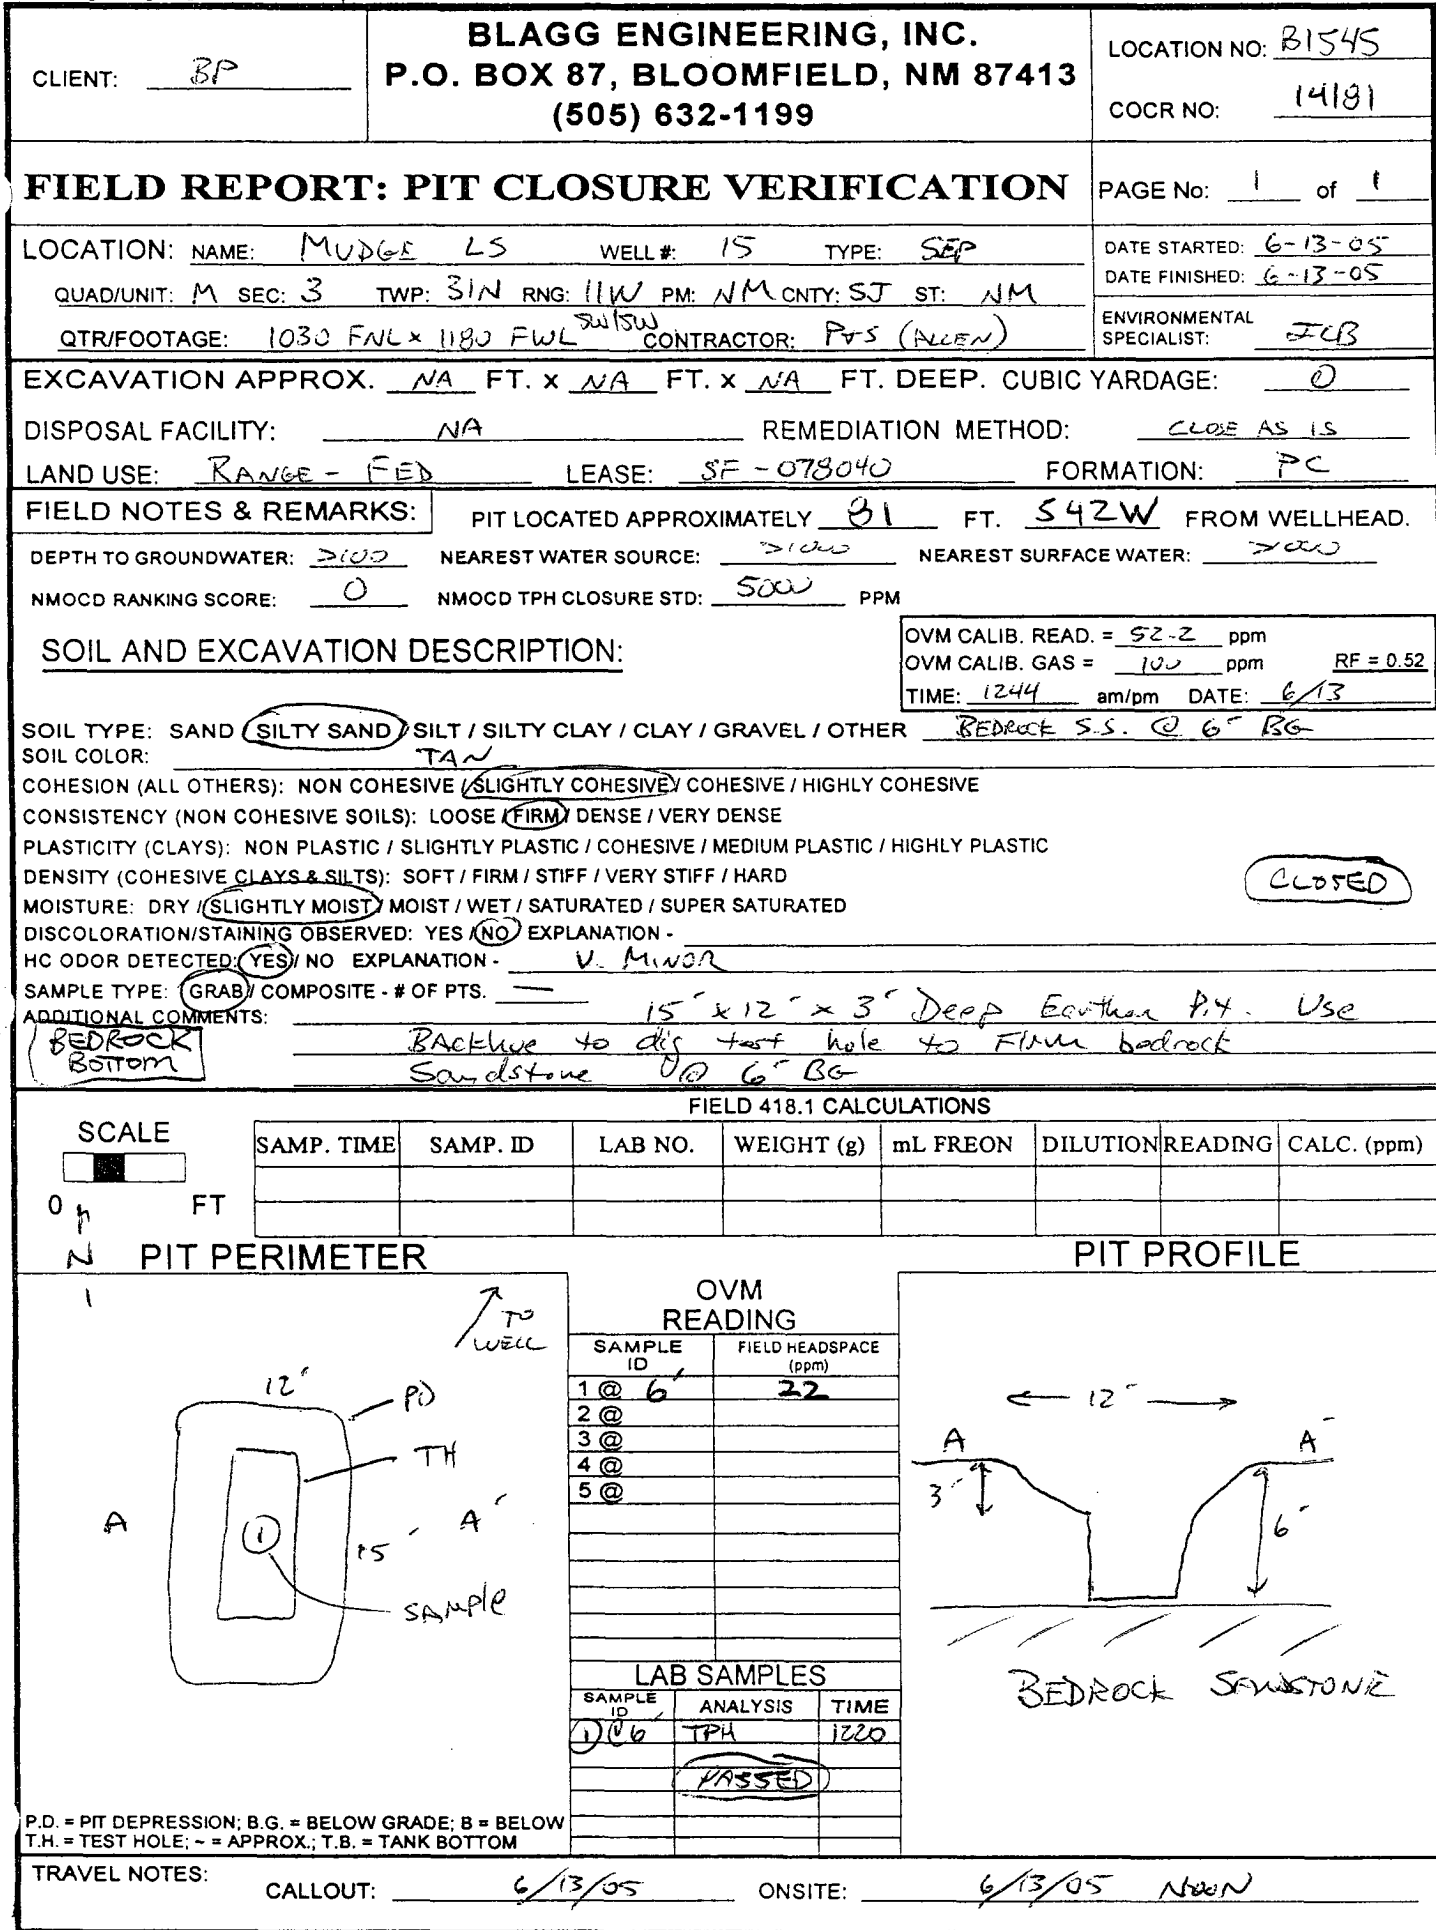 CLIENT: BP
BLAGG ENGINEERING, INC.
P.O. BOX 87, BLOOMFIELD, NM 87413
(505) 632-1199
LOCATION NO: B1545
COCR NO: 14181
FIELD REPORT: PIT CLOSURE VERIFICATION
PAGE No: 1 of 1
LOCATION: NAME: MUDGE LS WELL #: 15 TYPE: SEP
QUAD/UNIT: M SEC: 3 TWP: 31N RNG: 11W PM: NM CNTY: SJ ST: NM
QTR/FOOTAGE: 1030 FNL x 1180 FWL SW/SW CONTRACTOR: P+S (ALLEN)
DATE STARTED: 6-13-05
DATE FINISHED: 6-13-05
ENVIRONMENTAL
SPECIALIST: JCB
EXCAVATION APPROX. NA FT. x NA FT. x NA FT. DEEP. CUBIC YARDAGE: 0
DISPOSAL FACILITY: NA REMEDIATION METHOD: CLOSE AS IS
LAND USE: RANGE - FED LEASE: SF-078040 FORMATION: PC
FIELD NOTES & REMARKS: PIT LOCATED APPROXIMATELY 81 FT. S42W FROM WELLHEAD.
DEPTH TO GROUNDWATER: >100 NEAREST WATER SOURCE: >1000 NEAREST SURFACE WATER: >1000
NMOCD RANKING SCORE: 0 NMOCD TPH CLOSURE STD: 5000 PPM
SOIL AND EXCAVATION DESCRIPTION:
OVM CALIB. READ. = 52.2 ppm
OVM CALIB. GAS = 100 ppm RF = 0.52
TIME: 1244 am/pm DATE: 6/13
SOIL TYPE: SAND / SILTY SAND / SILT / SILTY CLAY / CLAY / GRAVEL / OTHER BEDROCK S.S. @ 6' BG
SOIL COLOR: TAN
COHESION (ALL OTHERS): NON COHESIVE / SLIGHTLY COHESIVE / COHESIVE / HIGHLY COHESIVE
CONSISTENCY (NON COHESIVE SOILS): LOOSE / FIRM / DENSE / VERY DENSE
PLASTICITY (CLAYS): NON PLASTIC / SLIGHTLY PLASTIC / COHESIVE / MEDIUM PLASTIC / HIGHLY PLASTIC
DENSITY (COHESIVE CLAYS & SILTS): SOFT / FIRM / STIFF / VERY STIFF / HARD
CLOSED
MOISTURE: DRY / SLIGHTLY MOIST / MOIST / WET / SATURATED / SUPER SATURATED
DISCOLORATION/STAINING OBSERVED: YES / NO EXPLANATION -
HC ODOR DETECTED: YES / NO EXPLANATION - V. MINOR
SAMPLE TYPE: GRAB / COMPOSITE - # OF PTS. —
ADDITIONAL COMMENTS: 15' x 12' x 3' Deep Earthen Pit. Use
BEDROCK BOTTOM
Backhoe to dig test hole to Firm bedrock
Sandstone @ 6' BG
FIELD 418.1 CALCULATIONS
SCALE
0 FT
SAMP. TIME SAMP. ID LAB NO. WEIGHT (g) mL FREON DILUTION READING CALC. (ppm)
N
PIT PERIMETER
PIT PROFILE
TO WELL
12'
PD
TH
A
1
15'
A'
SAMPLE
OVM
READING
SAMPLE ID FIELD HEADSPACE (ppm)
1 @ 6' 22
2 @
3 @
4 @
5 @
LAB SAMPLES
SAMPLE ID ANALYSIS TIME
1 @ 6' TPH 1220
PASSED
12'
A
A'
3'
6'
BEDROCK SANDSTONE
P.D. = PIT DEPRESSION; B.G. = BELOW GRADE; B = BELOW
T.H. = TEST HOLE; ~ = APPROX.; T.B. = TANK BOTTOM
TRAVEL NOTES:
CALLOUT: 6/13/05 ONSITE: 6/13/05 NOON